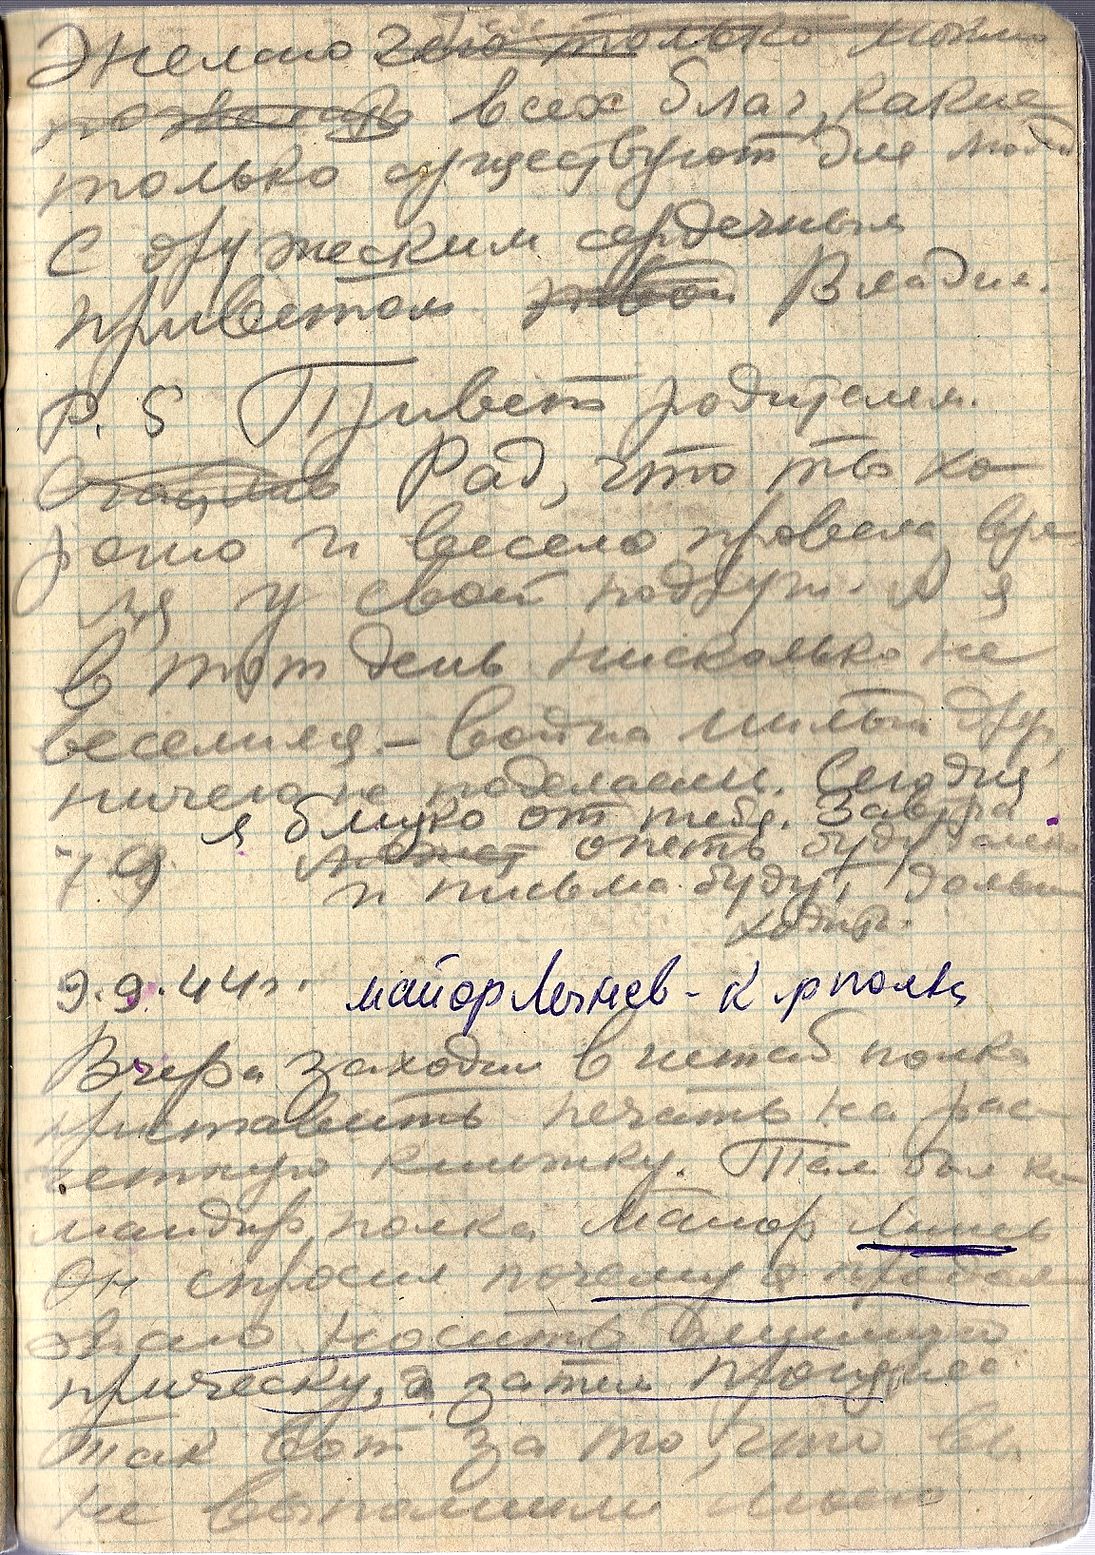 Желаю чего только можно
пожелать всех благ, какие
только существуют для людей
С дружеским сердечным
приветом твой Владим.
P. S Привет родителям.
Счастлив Рад, что ты хо-
рошо и весело провела вре-
мя у своей подруги. А я
в тот день нисколько не
веселился – война милый друг,
ничего не поделаешь. Сегодня
я близко от тебя. Завтра
может опять буду далеко
79 и письма будут дольше
ходить.
9.9.44г. майор Лычнев - к-р полка
Вчера заходил в штаб полка
приставить печать на рас-
четную книжку. Там был ко-
мандир полка майор
Он спросил почему я продол-
жаю носить длинную
прическу, а затем произнес
так вот за то, что вы
не выполнили моего